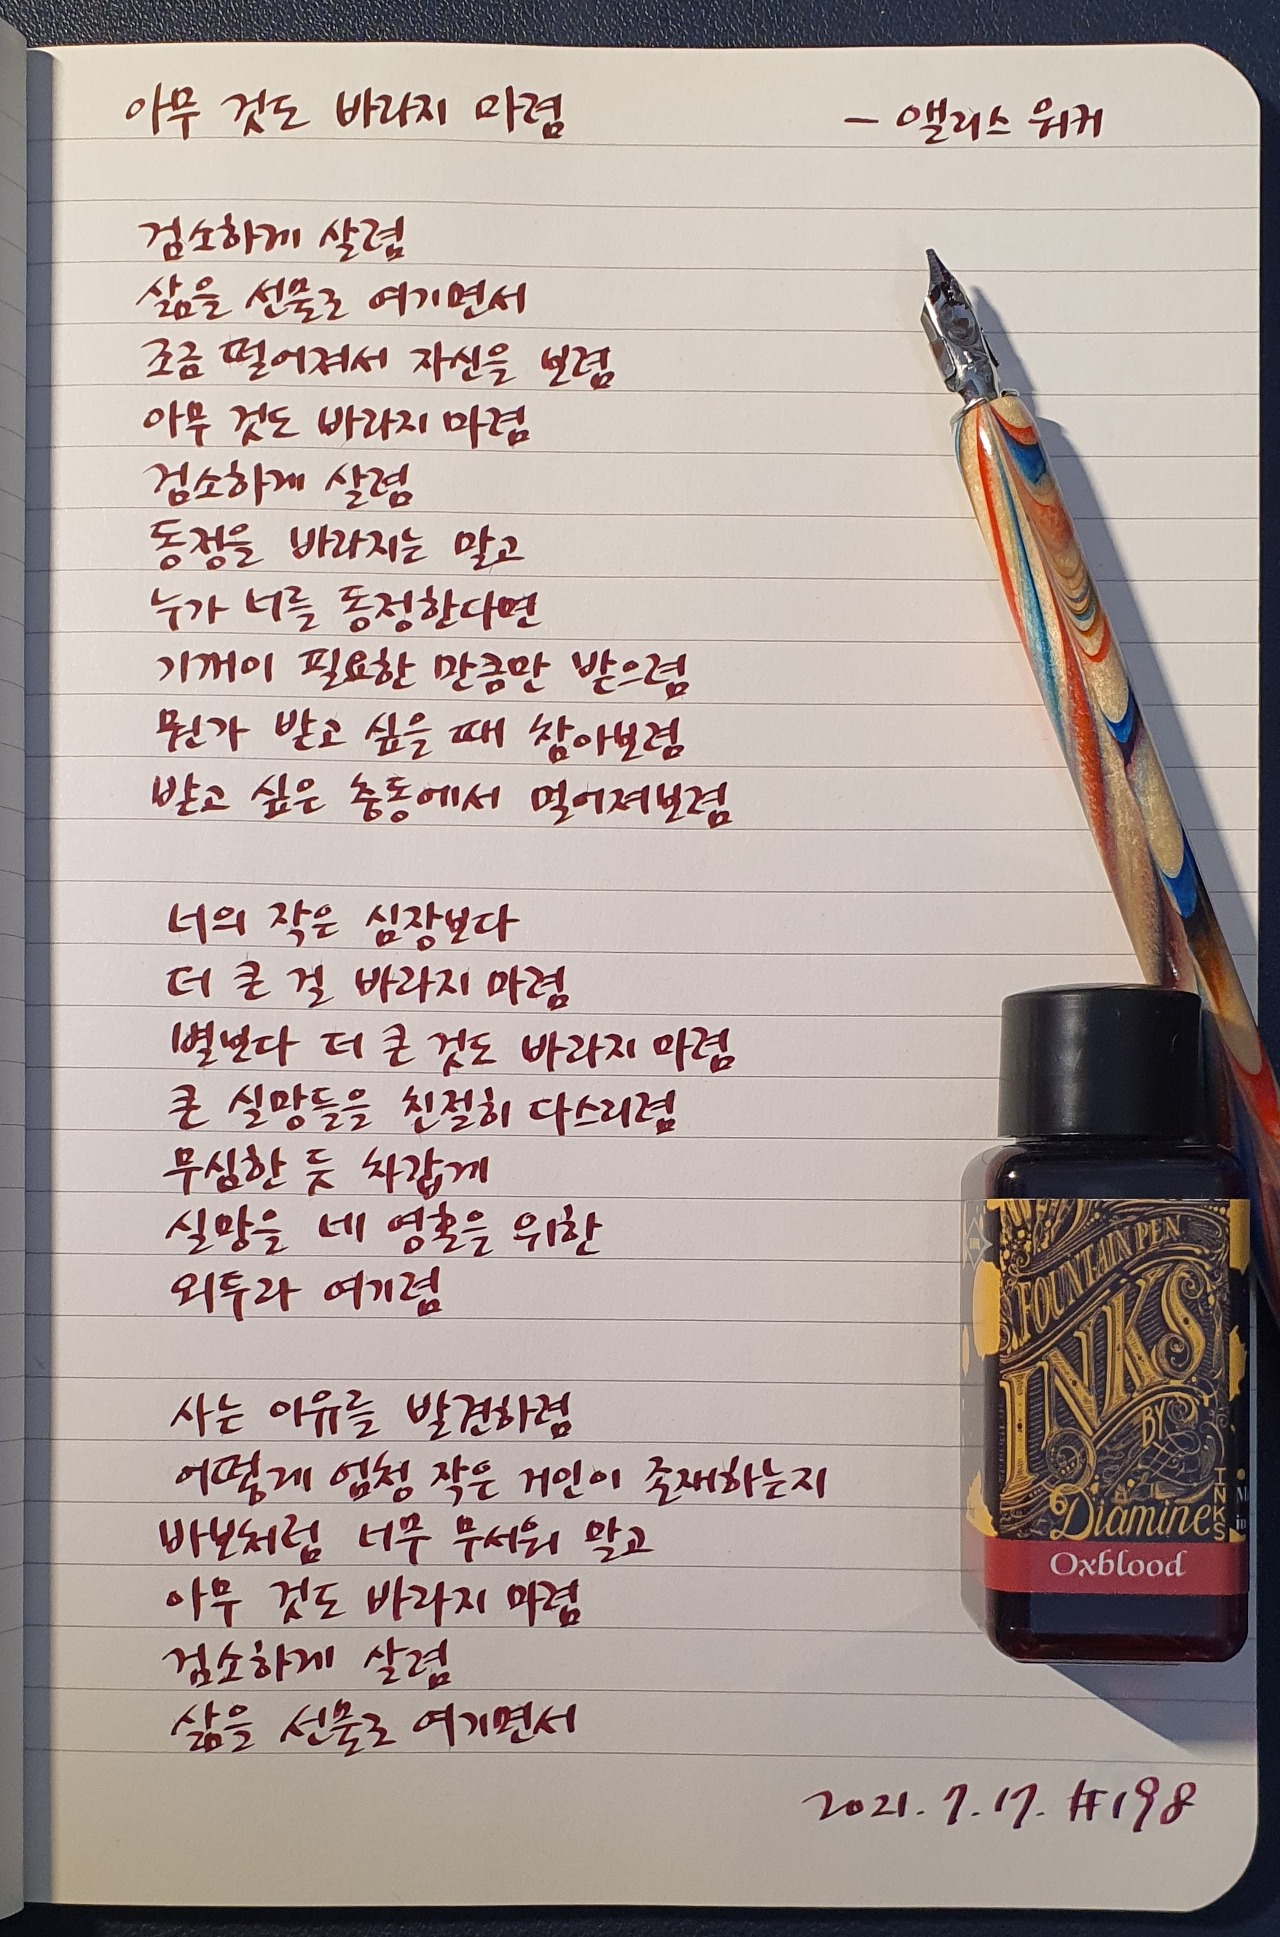 아무 것도 바라지 마렴
- 앨리스 워커
검소하게 살렴
삶을 선물로 여기면서
조금 떨어져서 자신을 보렴
아무 것도 바라지 마렴
검소하게 살렴
동정을 바라지는 말고
누가 너를 동정한다면
기꺼이 필요한 만큼만 받으렴
뭔가 받고 싶을 때 참아보렴
받고 싶은 충동에서 멀어져보렴
너의 작은 심장보다
더 큰 걸 바라지 마렴
별보다 더 큰 것도 바라지 마렴
큰 실망들을 친절히 다스리렴
무심한 듯 차갑게
실망을 네 영혼을 위한
외투라 여기렴
사는 이유를 발견하렴
어떻게 엄청 작은 거인이 존재하는지
바보처럼 너무 무서워 말고
아무 것도 바라지 마렴
검소하게 살렴
삶을 선물로 여기면서
2021. 7. 17. #198
FOUNTAIN PEN
INKS
BY
Diamine
INKS
Oxblood